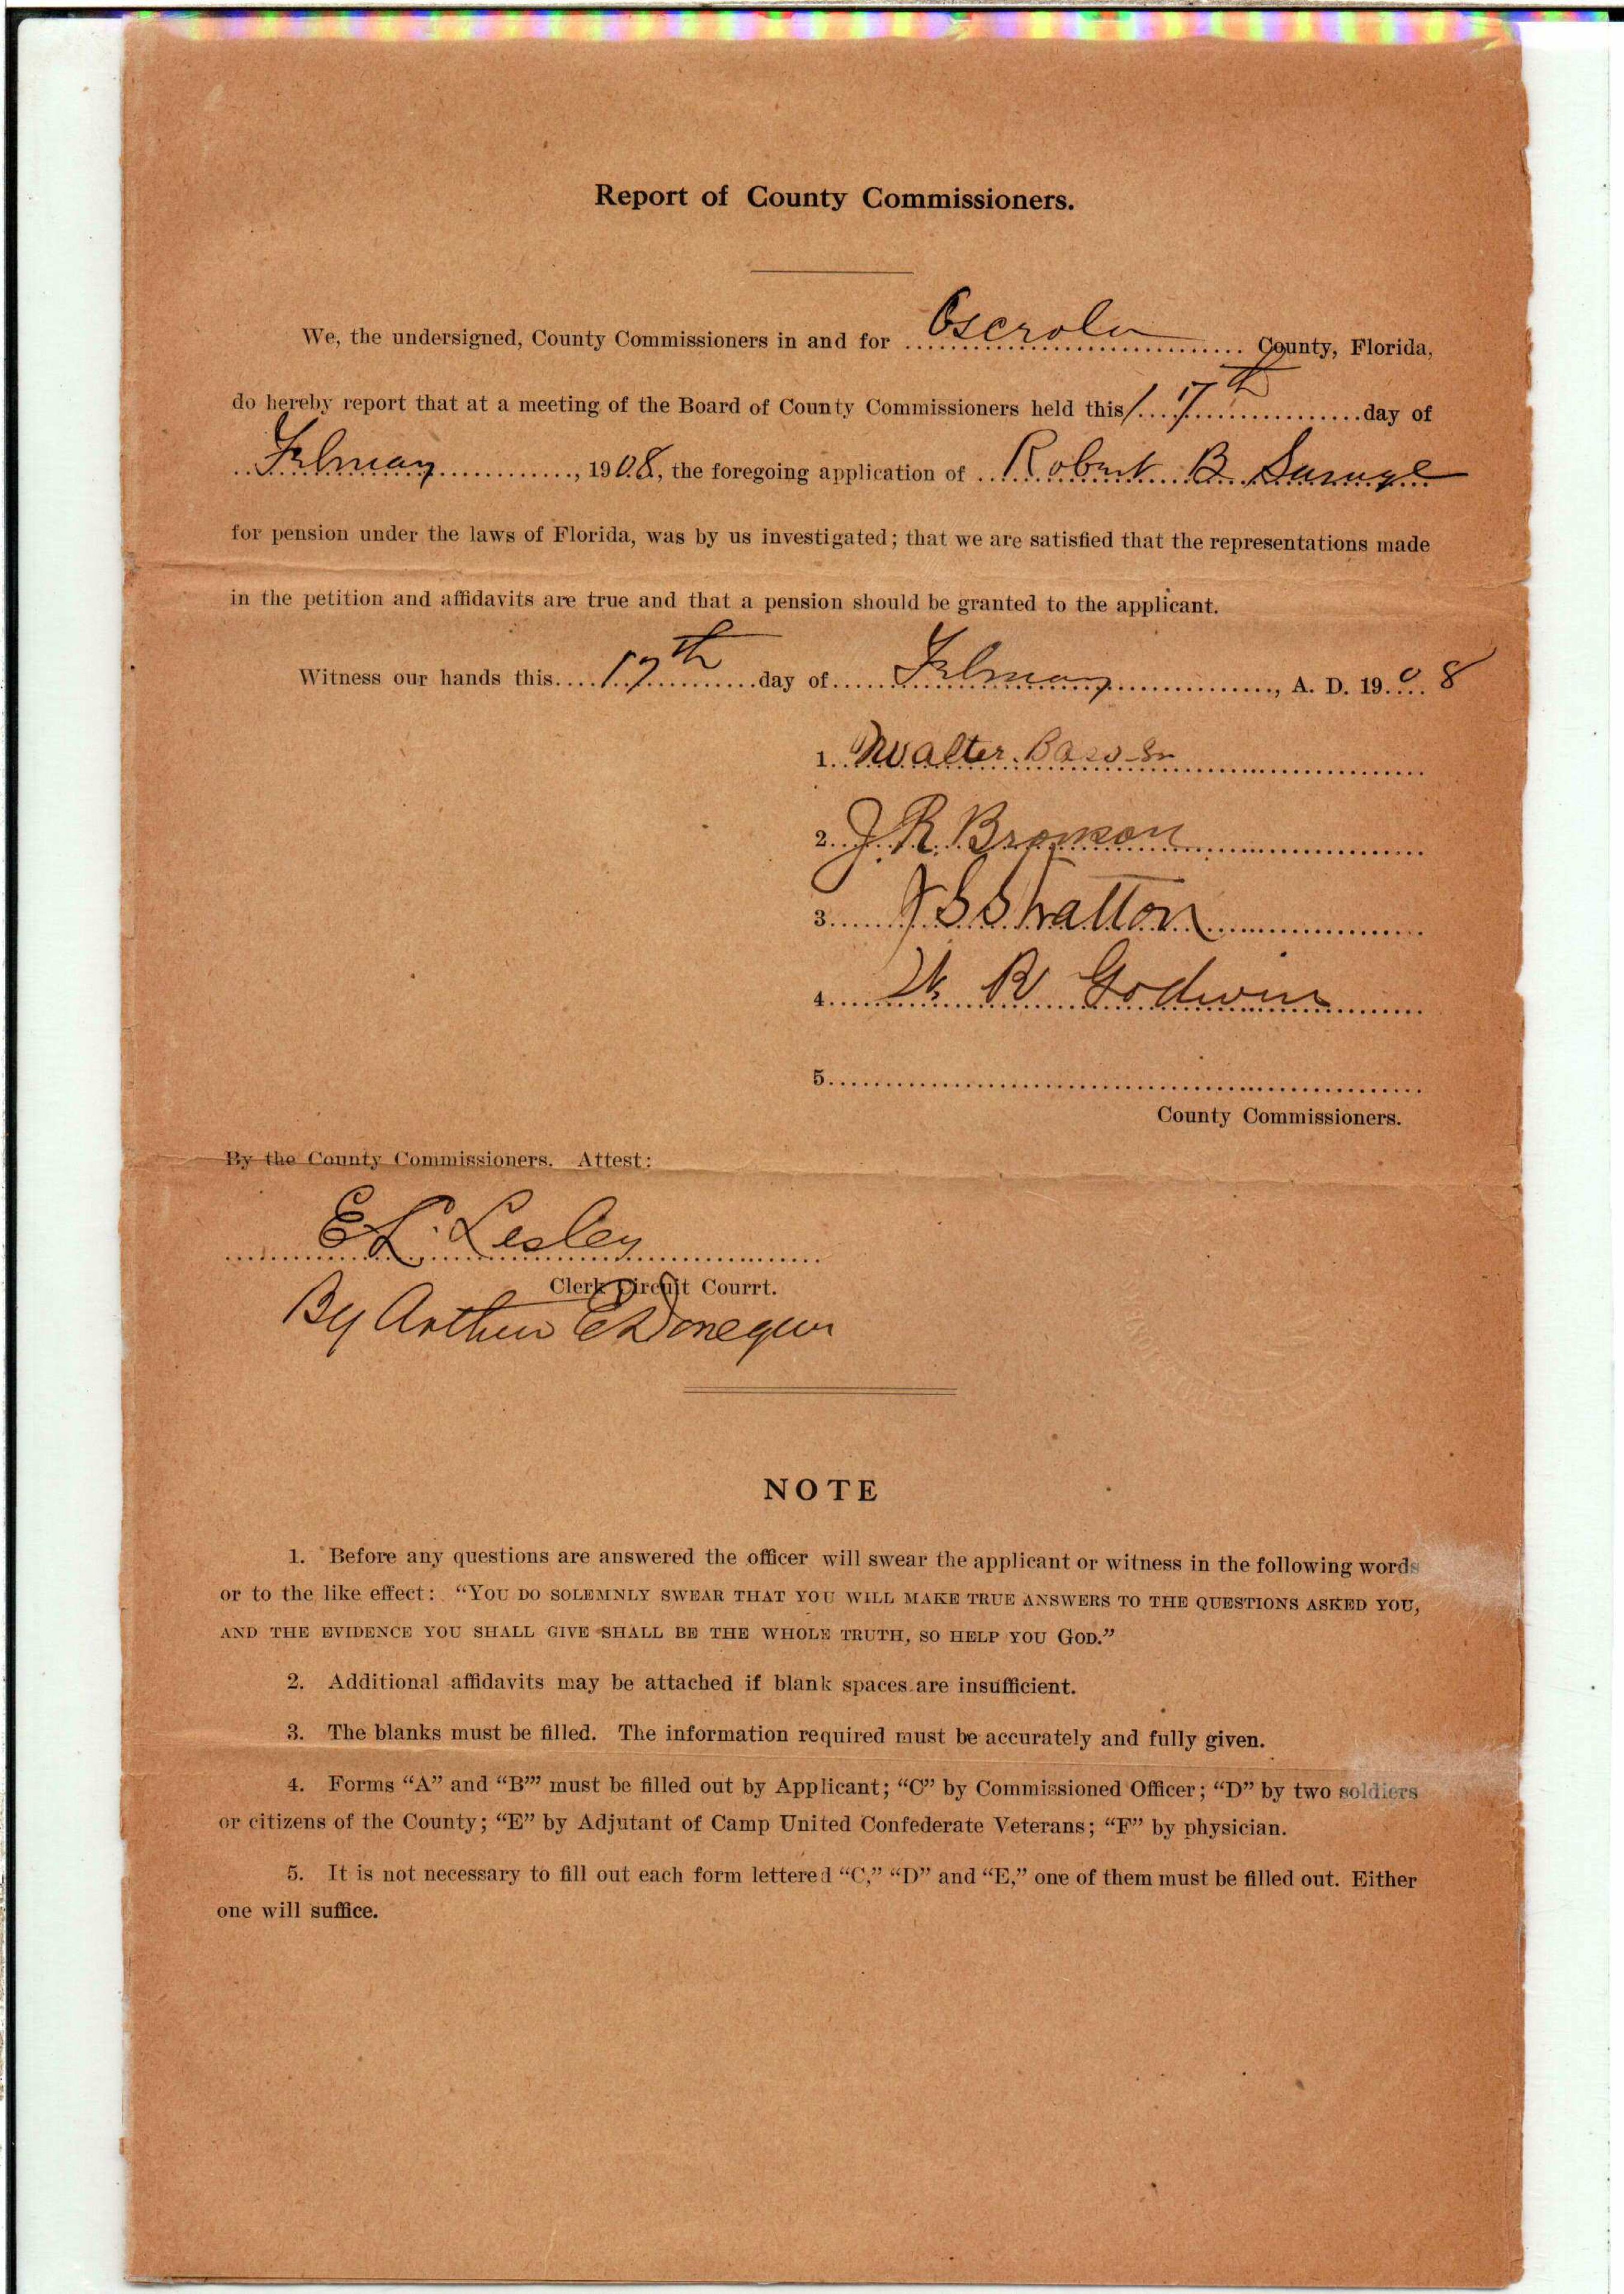 Report of County Commissioners.
We, the undersigned, County Commissioners in and for Osceola County, Florida,
do hereby report that at a meeting of the Board of County Commissioners held this 17th day of
February, 1908, the foregoing application of Robert B. Savage
for pension under the laws of Florida, was by us investigated; that we are satisfied that the representations made
in the petition and affidavits are true and that a pension should be granted to the applicant.
Witness our hands this 17th day of February, A. D. 1908
1. Walter Bass Sr
2. J. R. Bronson
3. J S Stratton
4. R Godwin
5.
County Commissioners.
By the County Commissioners. Attest:
E L. Lesley
Clerk Circuit Courrt.
By Arthur E Donegan
NOTE
1. Before any questions are answered the officer will swear the applicant or witness in the following words
or to the like effect: “YOU DO SOLEMNLY SWEAR THAT YOU WILL MAKE TRUE ANSWERS TO THE QUESTIONS ASKED YOU,
AND THE EVIDENCE YOU SHALL GIVE SHALL BE THE WHOLE TRUTH, SO HELP YOU GOD.”
2. Additional affidavits may be attached if blank spaces are insufficient.
3. The blanks must be filled. The information required must be accurately and fully given.
4. Forms “A” and “B”’ must be filled out by Applicant; “C” by Commissioned Officer; “D” by two soldiers
or citizens of the County; “E” by Adjutant of Camp United Confederate Veterans; “F” by physician.
5. It is not necessary to fill out each form lettered “C,” “D” and “E,” one of them must be filled out. Either
one will suffice.